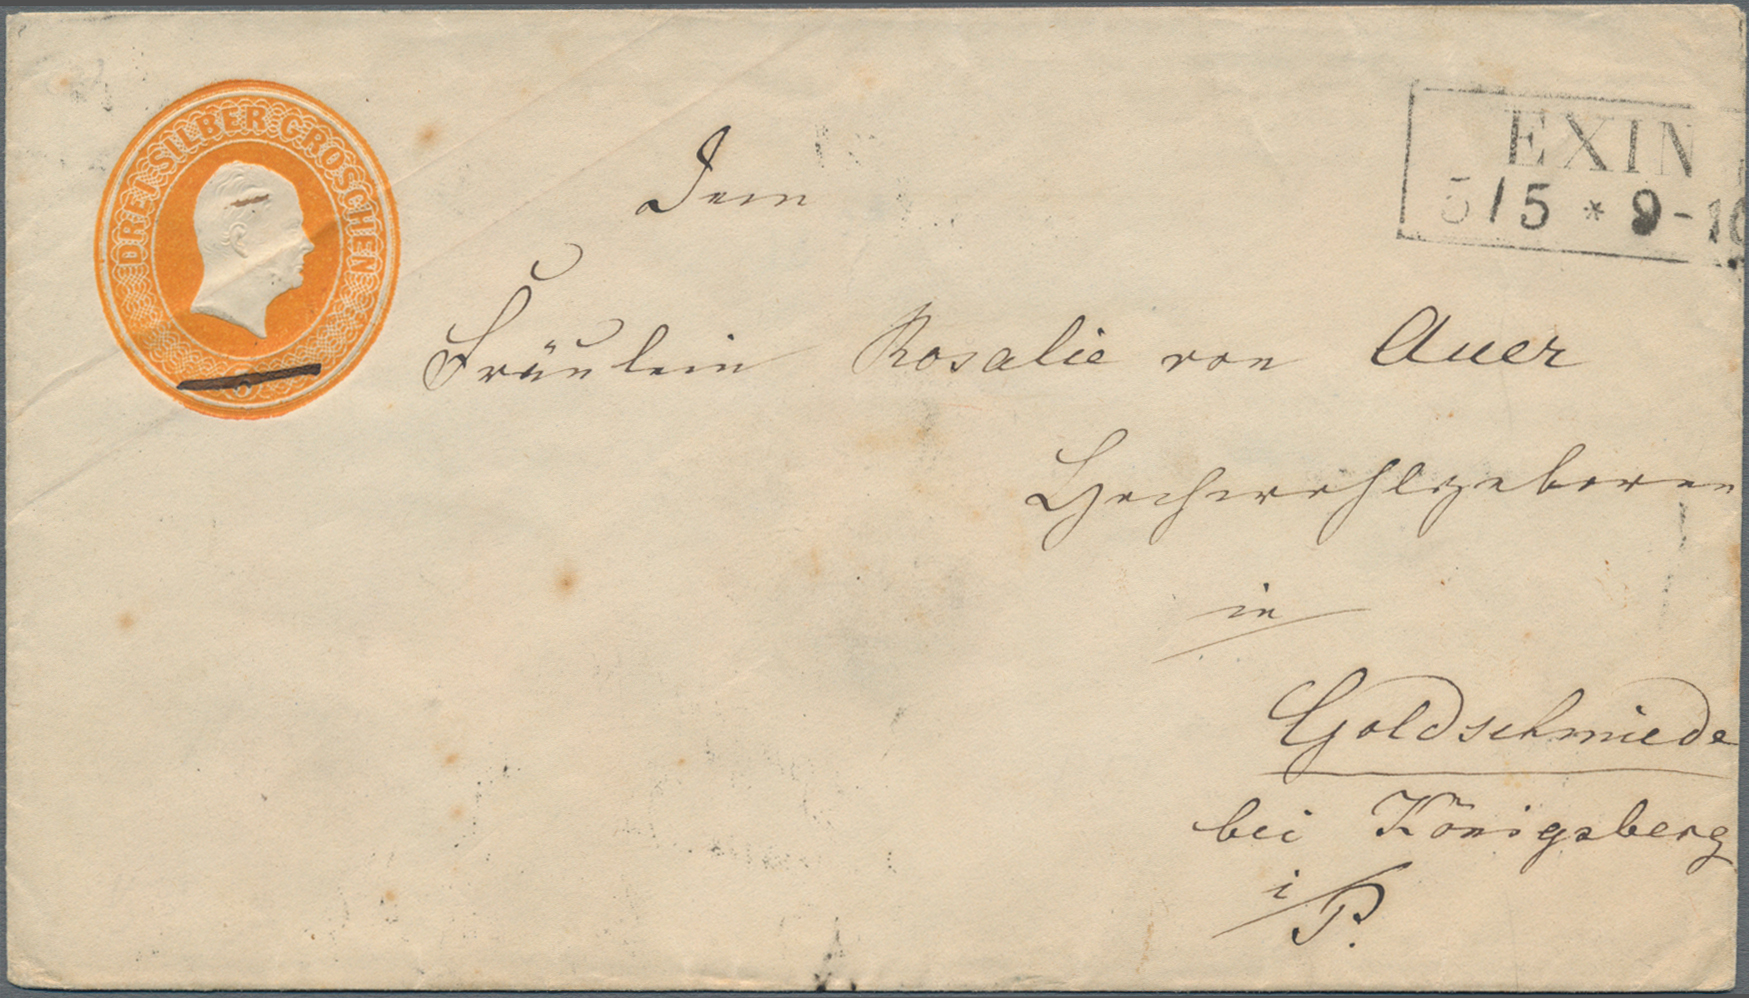 DREI SILBER GROSCHEN
3
EXIN
5/5 * 9-10
Dem
Fräulein Rosalie von Auer
Hochwohlgeboren
in
Goldschmiede
bei Königsberg
i/P.